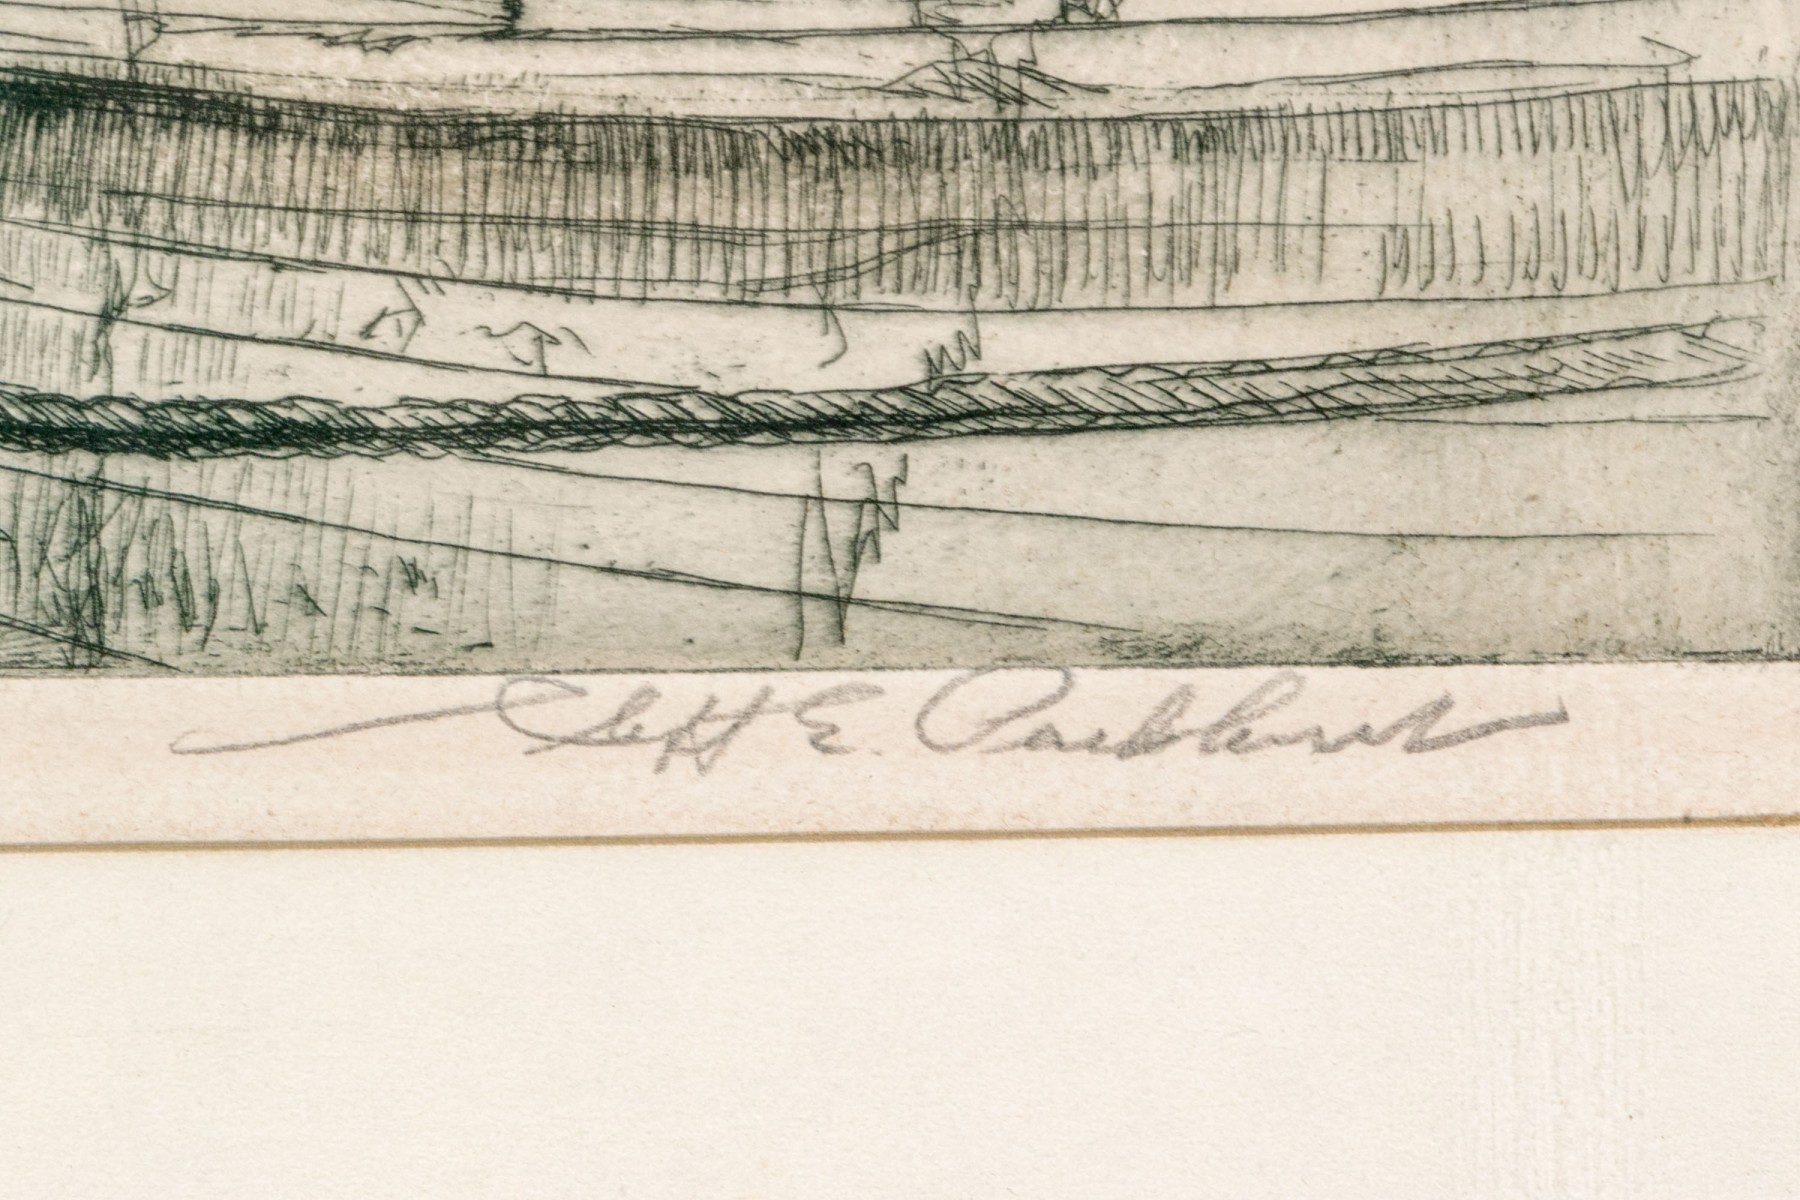 Cleff E. Parkhurst